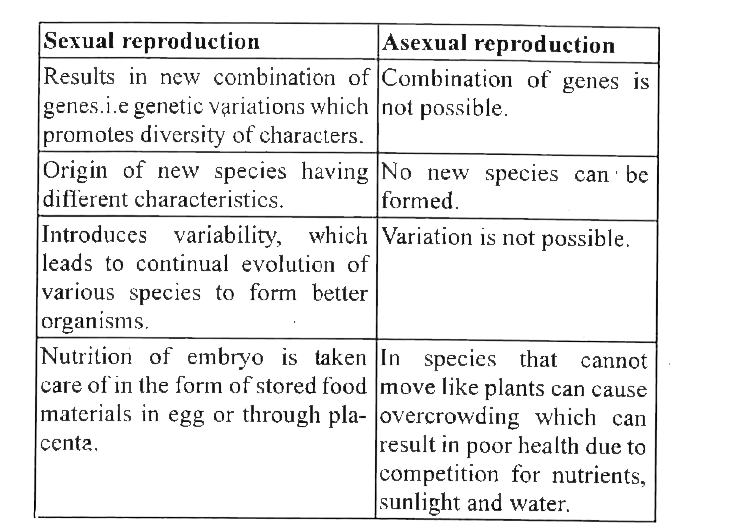 Sexual reproduction
Asexual reproduction
Results in new combination of
genes.i.e genetic variations which
promotes diversity of characters.
Combination of genes is
not possible.
Origin of new species having
different characteristics.
No new species can be
formed.
Introduces variability, which
leads to continual evolution of
various species to form better
organisms.
Variation is not possible.
Nutrition of embryo is taken
care of in the form of stored food
materials in egg or through pla-
centa.
In species that cannot
move like plants can cause
overcrowding which can
result in poor health due to
competition for nutrients,
sunlight and water.